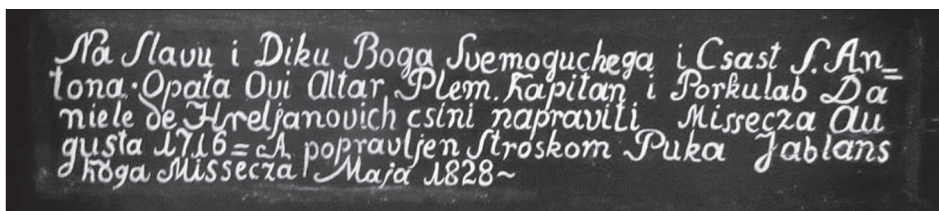 Na Slavu i Diku Boga Svemoguchega i Csast S. An=
tona. Opata Ovi Altar, Plem. Kapitan i Porkulab Da
niele de Hreljanovich csini napraviti Missecza Au
gusta 1716 = A popravljen Stroskom Puka Jablans
koga Missecza Maja 1828~